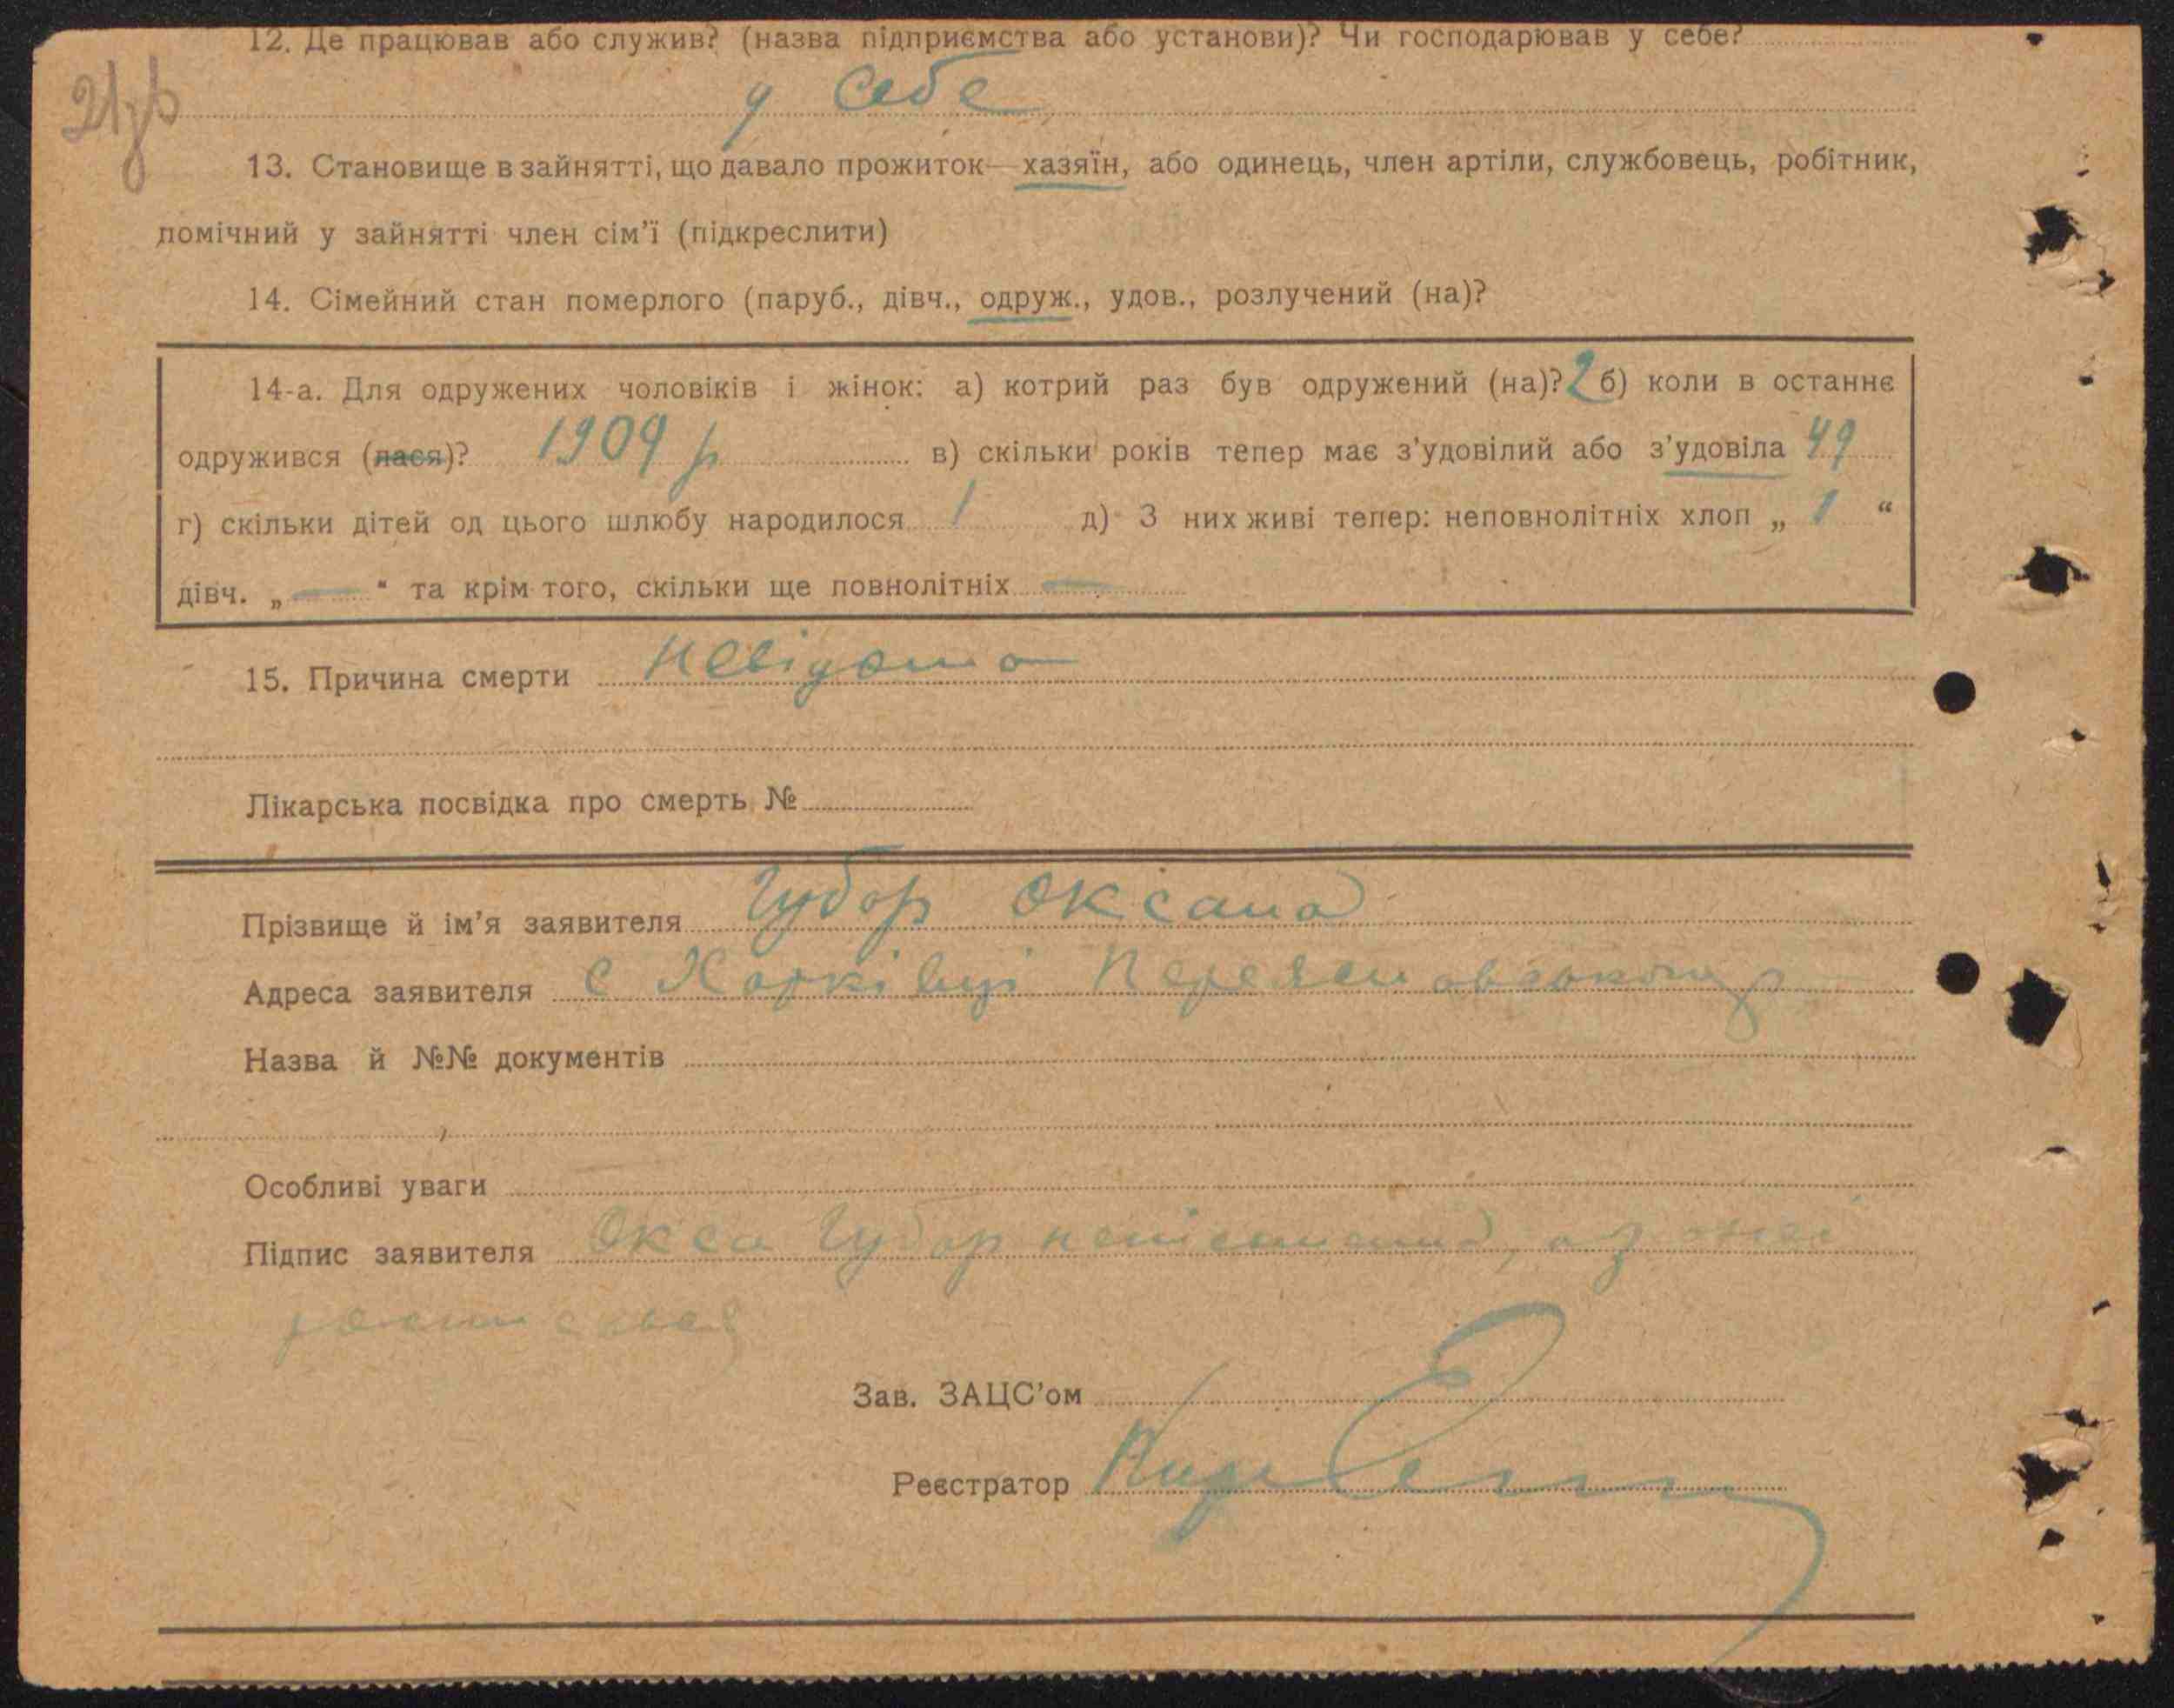 12. Де працював або служив? (назва підприємства або установи)? Чи господарював у себе?
21зв
у себе
13. Становище в зайнятті, що давало прожиток—хазяїн, або одинець, член артіли, службовець, робітник,
помічний у зайнятті член сім’ї (підкреслити)
14. Сімейний стан померлого (паруб., дівч., одруж., удов., розлучений (на)?
14-а. Для одружених чоловіків і жінок: а) котрий раз був одружений (на)? 2 б) коли в останнє
одружився (лася)? 1909 р в) скільки років тепер має з’удовілий або з’удовіла 49
г) скільки дітей од цього шлюбу народилося 1 д) З них живі тепер: неповнолітніх хлоп „ 1 “
дівч. „ — “ та крім того, скільки ще повнолітніх —
15. Причина смерти невідома
Лікарська посвідка про смерть №
Прізвище й ім’я заявителя Губар Оксана
Адреса заявителя с Харківці Переяславського р
Назва й №№ документів
Особливі уваги
Підпис заявителя Окса Губар неписьменна, а з неї
Зав. ЗАЦС’ом
Реєстратор